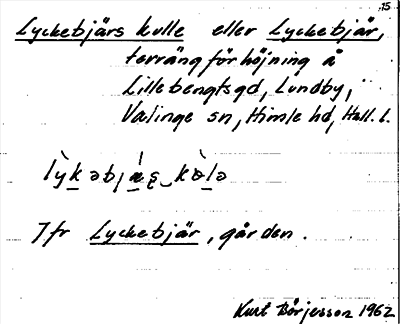 15
Lyckebjärs kulle eller Lyckebjär,
terrängförhöjning å
Lillebengtsgd, Lundby,
Valinge sn, Himle hd, Hall. l.
Jfr Lyckebjär, gården.
Kurt Börjesson 1962